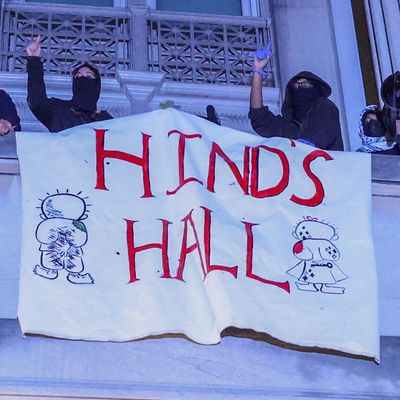 HIND'S
HALL